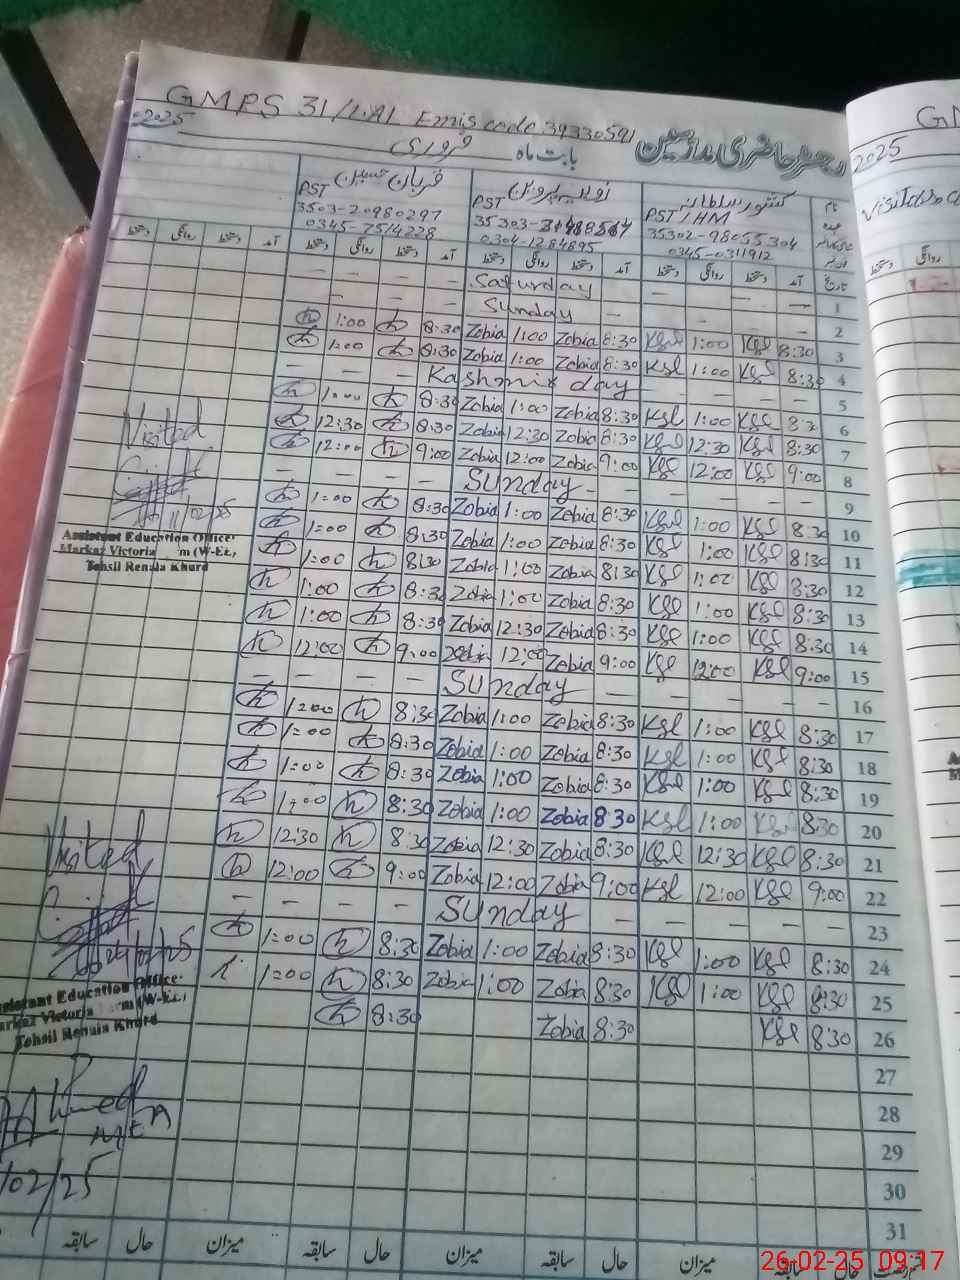 GMPS 31/1.AL Emis code 39330591
2025 بابت ماہ فروری
قربان حسین
PST
3503-20980297
0345-7514228
PST
0304-1284895
کنثور سلطانہ
PST/HM
35302-98055304
0345-0311912
دستخط روانگی دستخط آمد دستخط روانگی دستخط آمد دستخط روانگی دستخط آمد دستخط روانگی دستخط آمد تاریخ
— — — — Saturday — — — — 1
— — — — Sunday — — — — — 2
1:00 8:30 Zobia 1:00 Zobia 8:30 Ksl 1:00 Ksl 8:30 3
1:00 8:30 Zobia 1:00 Zobia 8:30 Ksl 1:00 Ksl 8:30 4
— — — — Kashmir day — — — — 5
1:00 8:30 Zobia 1:00 Zobia 8:30 Ksl 1:00 Ksl 8:30 6
12:30 8:30 Zobia 12:30 Zobia 8:30 Ksl 12:30 Ksl 8:30 7
12:00 9:00 Zobia 12:00 Zobia 9:00 Ksl 12:00 Ksl 9:00 8
— — — — Sunday — — — — — — 9
1:00 8:30 Zobia 1:00 Zobia 8:30 Ksl 1:00 Ksl 8:30 10
1:00 8:30 Zobia 1:00 Zobia 8:30 Ksl 1:00 Ksl 8:30 11
1:00 8:30 Zobia 1:00 Zobia 8:30 Ksl 1:00 Ksl 8:30 12
1:00 8:30 Zobia 1:00 Zobia 8:30 Ksl 1:00 Ksl 8:30 13
1:00 8:30 Zobia 12:30 Zobia 8:30 Ksl 1:00 Ksl 8:30 14
12:00 9:00 Zobia 12:00 Zobia 9:00 Ksl 12:00 Ksl 9:00 15
— — — — Sunday — — — — — 16
1:00 8:30 Zobia 1:00 Zobia 8:30 Ksl 1:00 Ksl 8:30 17
1:00 8:30 Zobia 1:00 Zobia 8:30 Ksl 1:00 Ksl 8:30 18
1:00 8:30 Zobia 1:00 Zobia 8:30 Ksl 1:00 Ksl 8:30 19
1:00 8:30 Zobia 1:00 Zobia 8:30 Ksl 1:00 Ksl 8:30 20
12:30 8:30 Zobia 12:30 Zobia 8:30 Ksl 12:30 Ksl 8:30 21
12:00 9:00 Zobia 12:00 Zobia 9:00 Ksl 12:00 Ksl 9:00 22
— — — — Sunday — — — — — 23
1:00 8:30 Zobia 1:00 Zobia 8:30 Ksl 1:00 Ksl 8:30 24
1:00 8:30 Zobia 1:00 Zobia 8:30 Ksl 1:00 Ksl 8:30 25
8:30 Zobia 8:30 Ksl 8:30 26
27
28
29
30
31
سابقہ حال میزان سابقہ حال میزان سابقہ حال میزان سابقہ حال
Visited
11/02/25
Assistant Education Officer
Markaz Victoria (W-EE),
Tehsil Renala Khurd
Visited
Assistant Education Office
Markaz Victoria (W-EE)
Tehsil Renala Khurd
Ahmed
/02/25
2025
روانگی دستخط
26-02-25 09:17